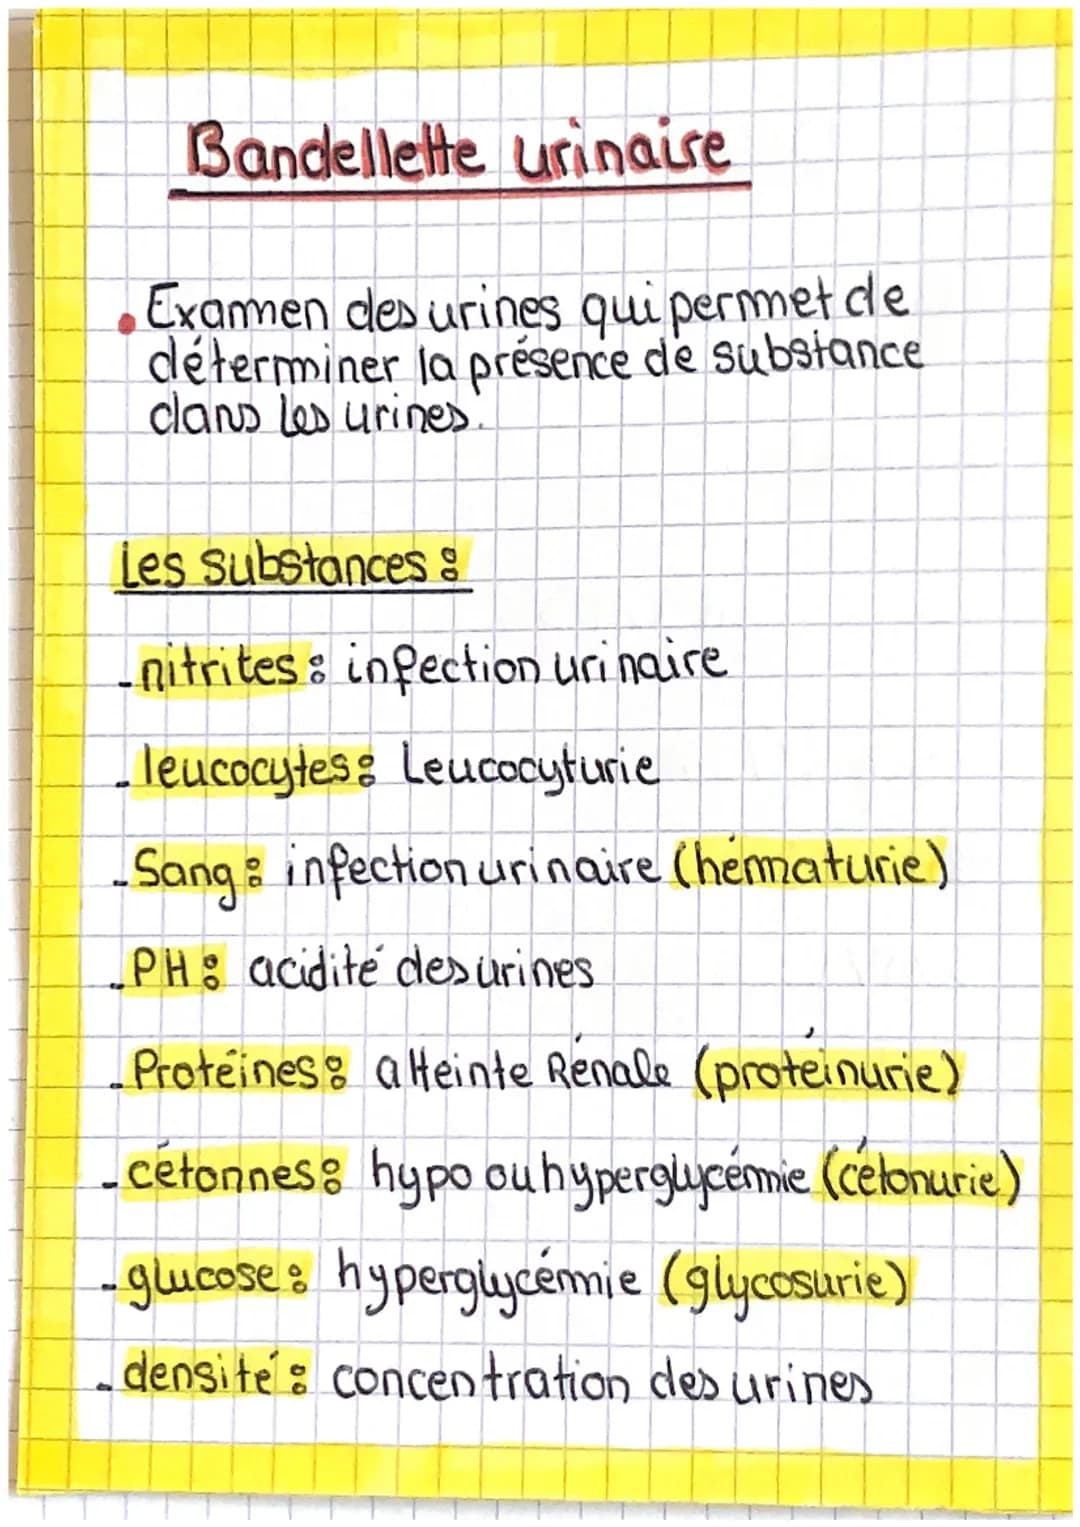 Bandellette urinaire
Examen des urines qui permet de
déterminer la présence de substance
dans les urines.
Les substances :
- nitrites : infection urinaire
- leucocytes : Leucocyturie
- Sang : infection urinaire (hématurie)
- PH : acidité des urines
- Protéines : atteinte Rénale (protéinurie)
- cétonnes : hypo ou hyperglycémie (cétonurie)
- glucose : hyperglycémie (glycosurie)
- densité : concentration des urines